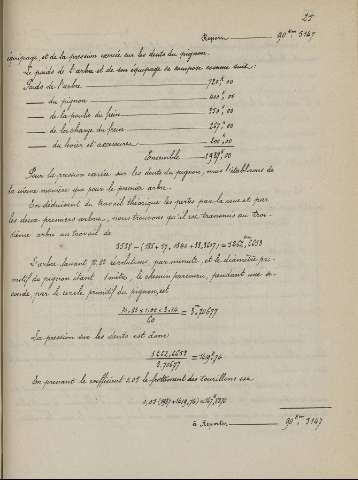 25
Report ——— 90 Km 3147
équipage, et de la pression exercée sur les dents du pignon.
Le poids de l'arbre et de son équipage se compose comme suit:
Poids de l'arbre ——— 720 k 00
— du pignon ——— 400 k, 00
— de la poulie du frein ——— 350 k, 00
— de la charge du frein ——— 267 k 00
— du levier et accessoires ——— 200, 00
Ensemble — 1937 k, 00
Pour la pression exercée sur les dents du pignon, nous l'établirons de
la même manière que pour le premier arbre.
En déduisant du travail théorique les pertes par la roue et par
les deux premiers arbres, nous trouvons qu'il est transmis au troi-
sième arbre un travail de
L'arbre faisant révolutions par minute, et le diamètre pri-
mitif du pignon étant 1 mètre, le chemin parcouru, pendant une se-
conde, par le cercle primitif du pignon, est
= 3,70677
60
La pression sur les dents est donc
3,70677
En prenant le coefficient 0,07 le frottement des tourillons sera
à Reporter ——— 90 Km 3147